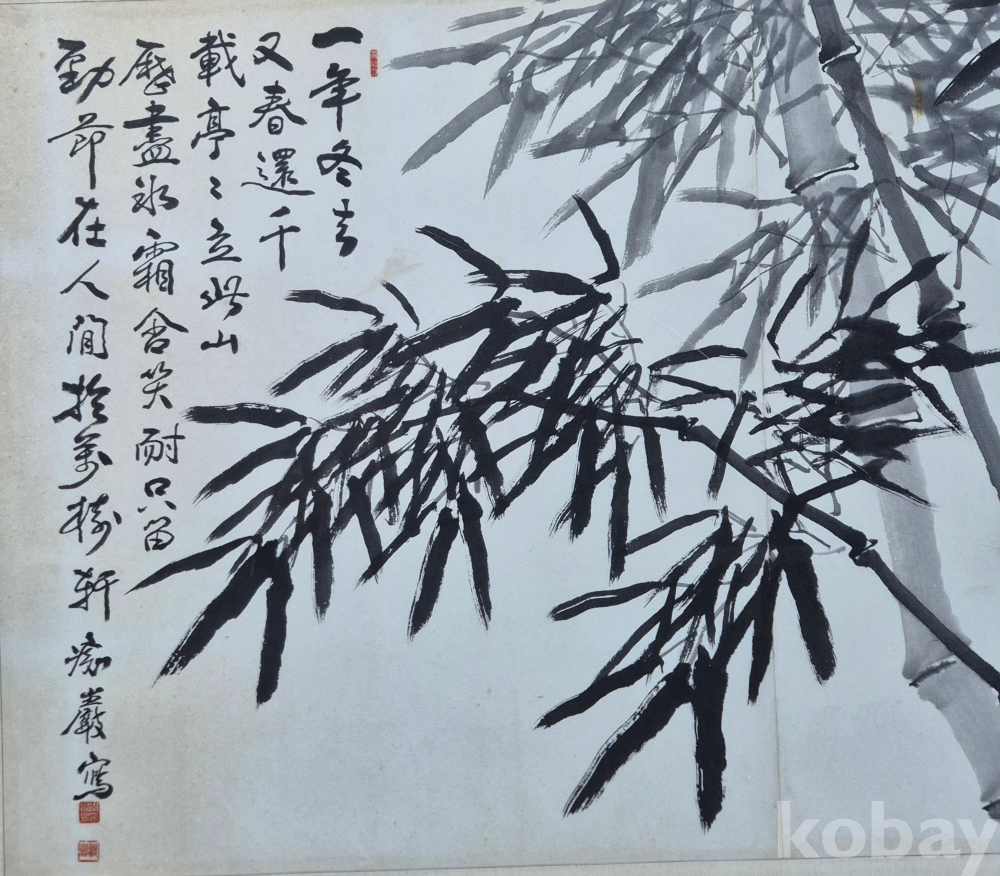 一年冬去
又春還千
載亭〻立此山
歷盡氷霜含笑耐只留
勁節在人間於萬樹軒 巖寫
kobay